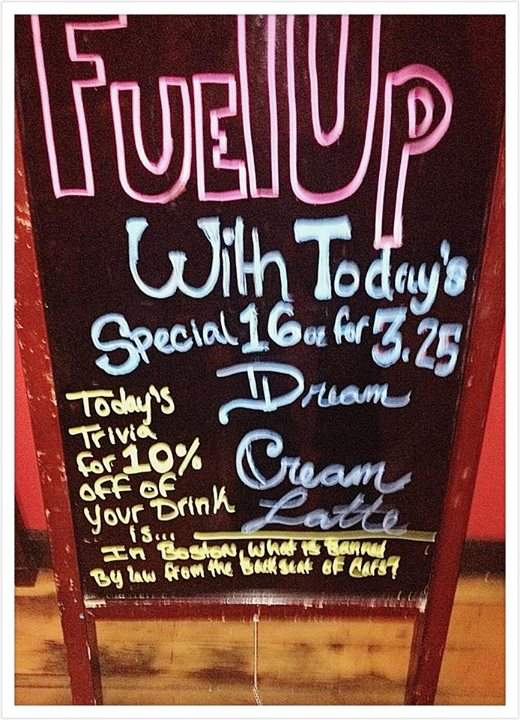 FUEl UP
With Today's
Special 16 oz for 3.25
Dream
Cream
Latte
Today's
Trivia
for 10%
off of
your Drink
is...
In Boston, what is Banned
By law from the Backseat of Cars?